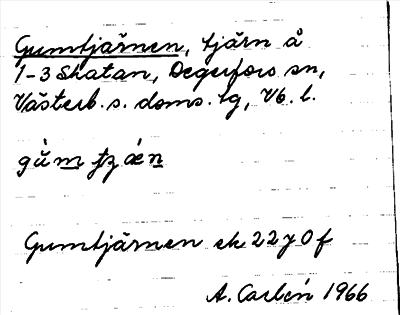 Gumtjärnen, tjärn å
1-3 Skatan, Degerfors sn,
Västerb. s. doms. tg, Vb. l.
Gumtjärnen ek 22 y 0 f
A. Carlén 1966